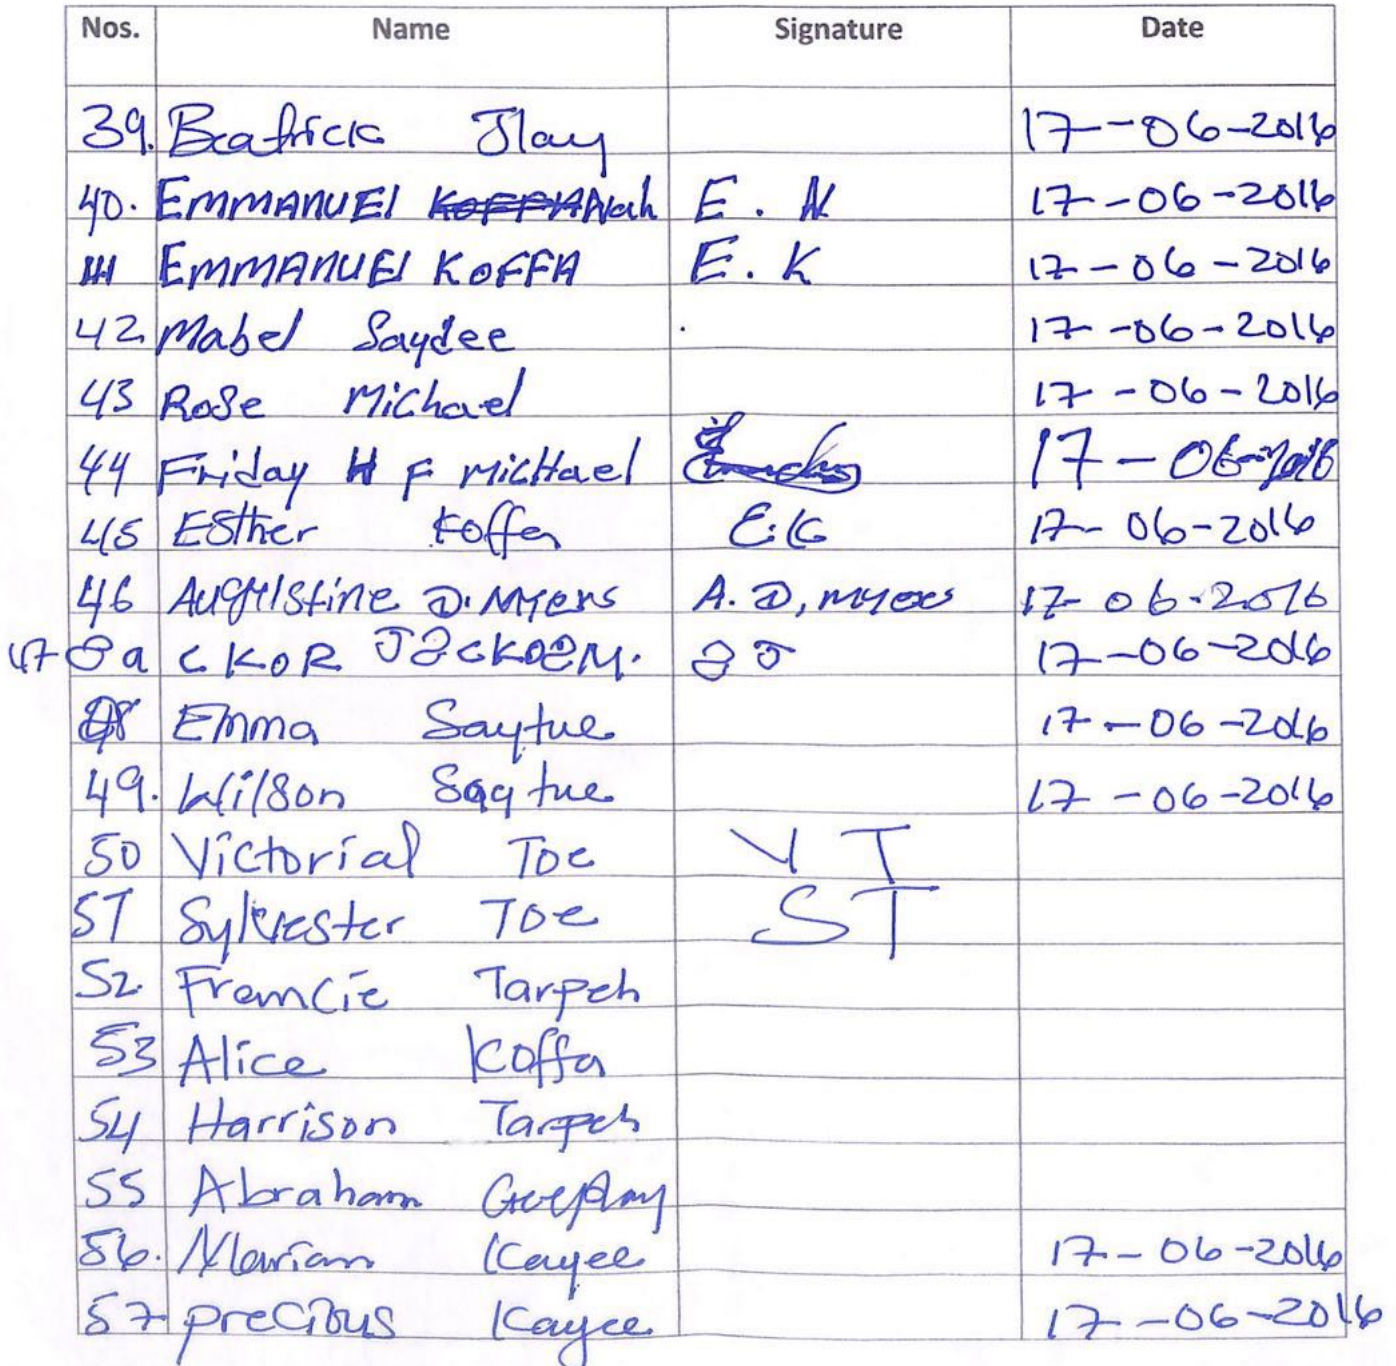 Nos. Name Signature Date
39. Beatrick Jlay 17-06-2016
40. EMMANUEl Nah E. N 17-06-2016
41 EMMANUEl KOFFA E. K 17-06-2016
42. Mabel Saydee 17-06-2016
43 RoSe Michael 17-06-2016
44 Friday H F MicHael 17-06-2016
45 ESther Koffa E.K 17-06-2016
46 D. Myers A. D, myers 17-06-2016
47 17-06-2016
48 Emma Saytue 17-06-2016
49. WilSon Saytue 17-06-2016
50 Victorial Toe V T
51 Sylvester Toe S T
52. Francie Tarpeh
53 Alice Koffa
54 Harrison Tarpeh
55 Abraham
56. Marian Kayee 17-06-2016
57 precious Kayee 17-06-2016